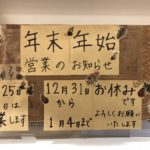 年末年始
営業のお知らせ
25日
日は
業します
12月31日
から
1月4日まで
お休み
です
よろしくお願い
いたします